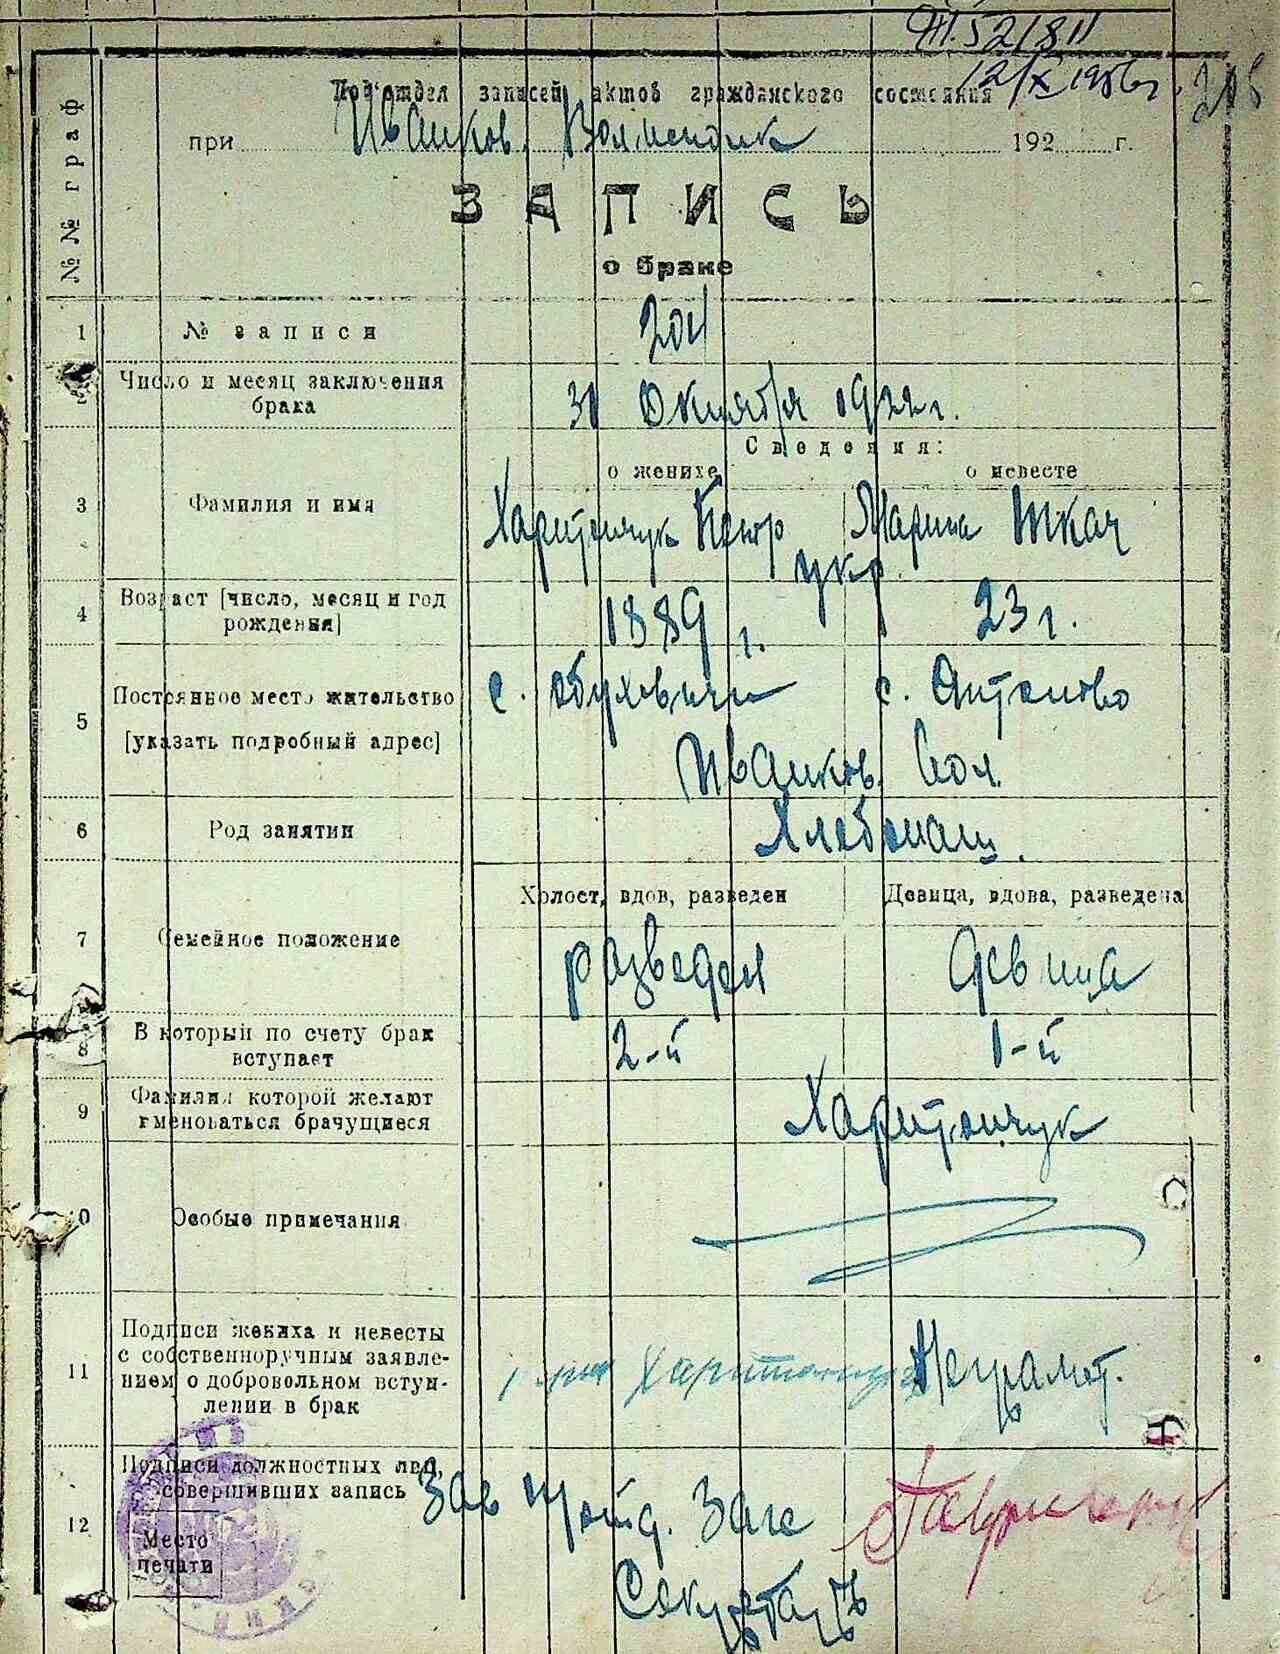 12/X 1956г.
Под'отдел записей актов гражданского состояния
при Иванков. Волисполк 192 г.
ЗАПИСЬ
о браке
№№ граф
1 № записи
Число и месяц заключения брака 31 Октября 1922 г.
Сведения:
о женихе о невесте
3 Фамилия и имя Харитончук Петр Марина Ткач
укр.
4 Возраст [число, месяц и год рождения] 1889 г. 23 г.
5 Постоянное место жительство [указать подробный адрес] с. Обуховичи с. Антоново
Иванков. Вол.
6 Род занятии Хлебопаш.
Холост, вдов, разведен Девица, вдова, разведена
7 Семейное положение разведен девица
8 В который по счету брак вступает 2-й 1-й
9 Фамилия которой желают именоваться брачущиеся Харитончук
0 Особые примечания
11 Подписи жениха и невесты
с собственноручным заявле-
нием о добровольном вступ-
лении в брак Харитончук Неграмот.
Подписи должностных лиц,
совершивших запись Зав
12 Место
печати
Секретарь